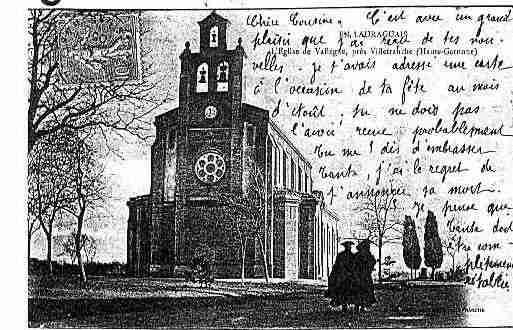 Chère Cousine. C'est avec un grand
EN LAURAGAIS
plaisir que j'ai reçu de tes nou-
L'Eglise de Vallègue, près Villefranche (Haute-Garonne)
velles. je t'avais adressé une carte
à l'occasion de ta fête au mois
d'Août, tu ne dois pas
l'avoir reçue probablement
Tu me dis d'embrasser
Tante, j'ai le regret de
t'annoncer sa mort.
Je pense que
Tante doit
être com-
plètement
rétablie.